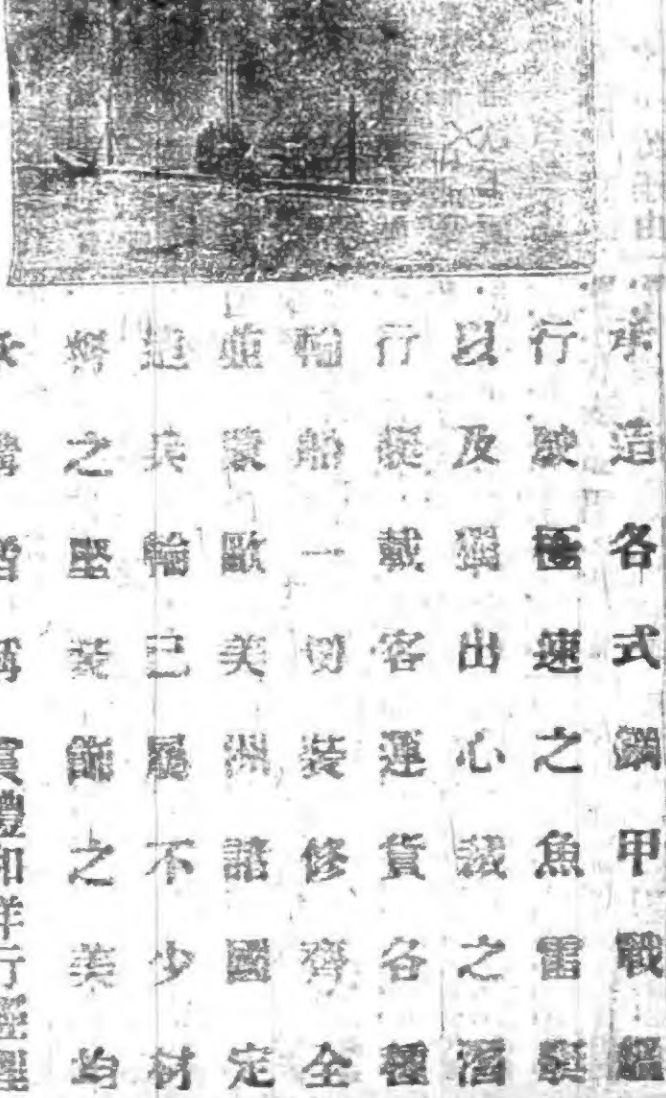 承造各式鋼甲戰艦
行駛極速之魚雷艇
以及獨出心裁之潛
行艇載客運貨各種
輪船一切裝修齊全
並歐美洲諸國定
造兵輪已屬不少材
料之堅裝飾之美均
禮和洋行經理